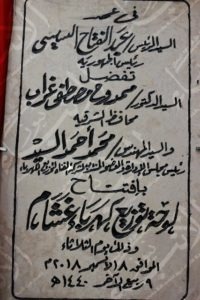 فى عهد
السيد الرئيس / عبد الفتاح السيسى
رئيس الجمهورية
تفضل
السيد الدكتور / ممدوح مصطفى غراب
محافظ الشرقية
والسيد المهندس / محمد أحمد السيد
رئيس مجلس الإدارة
بافتتاح
لوحة توزيع كهرباء غشام
وذلك يوم الثلاثاء
الموافق ١٨ ديسمبر ٢٠١٨ م
ربيع الآخر ١٤٤٠ هـ